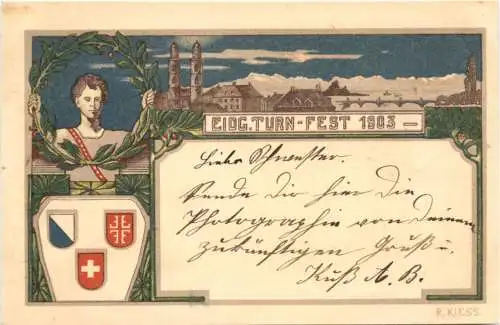 EIDG. TURN-FEST 1903
Liebe Schwester.
Sende Dir hier die
Photographie von Deinem
zukünftigen Gruß u.
Kuß A. B.
R. KIESS